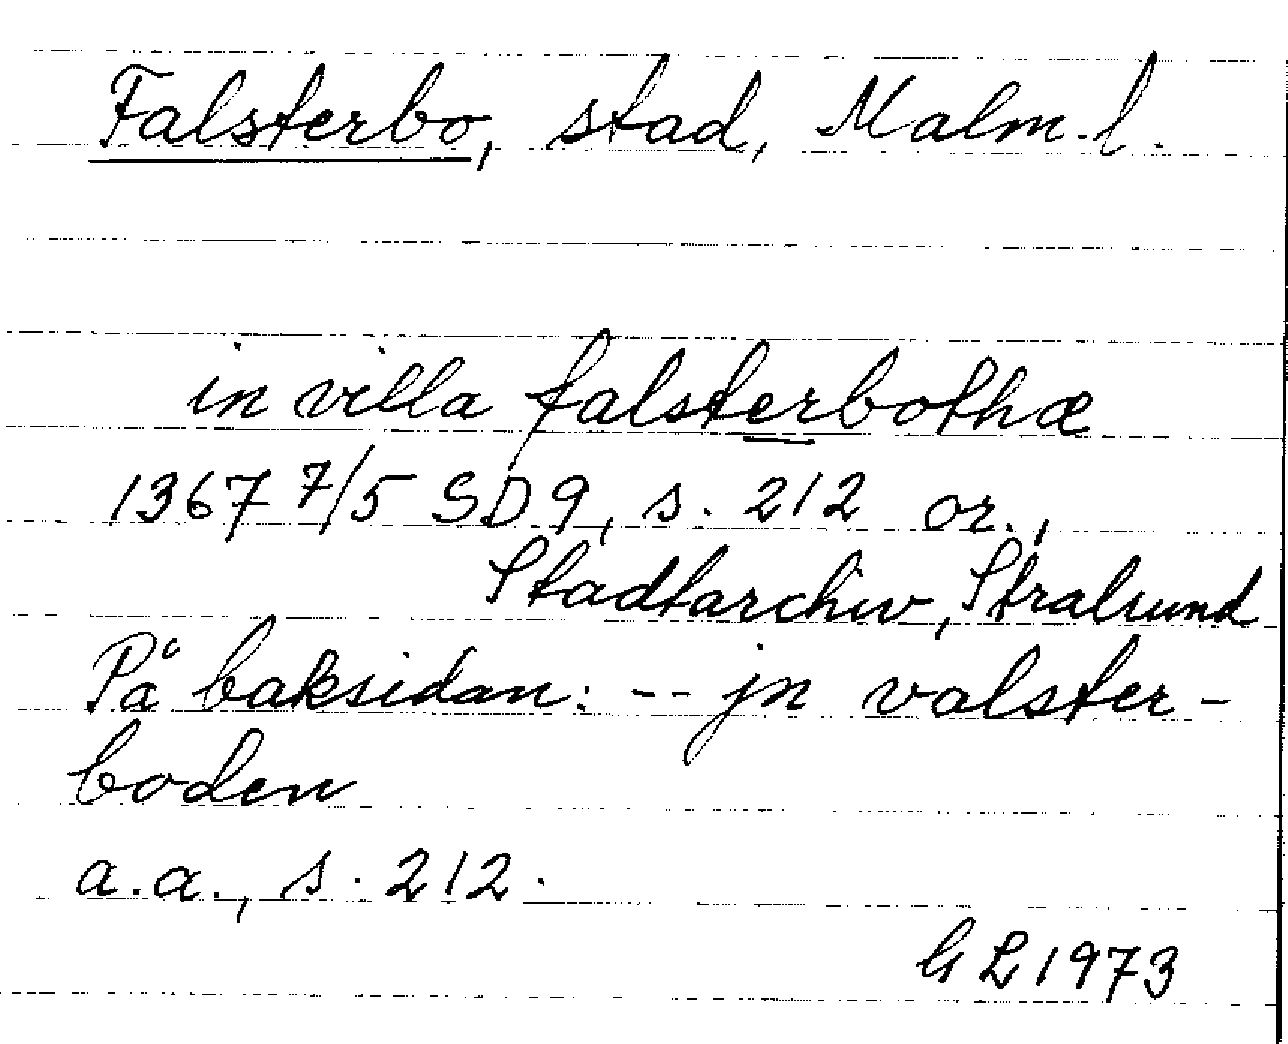 Falsterbo, stad, Malm. l.
in villa falsterbothæ
1367 7/5 SD 9, s. 212 or.,
Stadtarchiv, Stralsund
På baksidan: -- jn valster-
boden
a.a., s. 212.
GL 1973